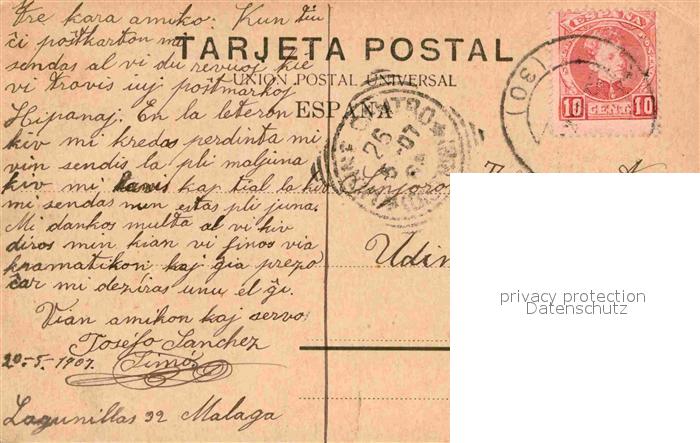 Tre kara amiko. Kun tiu
ĉi poŝtkarton mi
sendas al vi du revuoj kie
vi trovis iuj poŝtmarkoj
Hipanaj. En la leteron
kiv mi kredas perdinta mi
vin sendis la pli maljuna
kiv mi havis kaj tial la kiv
mi sendas nun estas pli juna.
Mi dankos multa al vi kiv
diros min kian vi finos via
gramatikon kaj gia prezo
ĉar mi deziras unu el ĝi.
Vian amikon kaj servo
Josefo Sanchez
Simó
20-5-1907.
Lagunillas 32 Malaga
TARJETA POSTAL
UNION POSTAL UNIVERSAL
ESPAÑA
ESPAÑA
10 CENT. 10
(30)
CENTRO
26
5
07
Sinjoro
Udin
privacy protection
Datenschutz